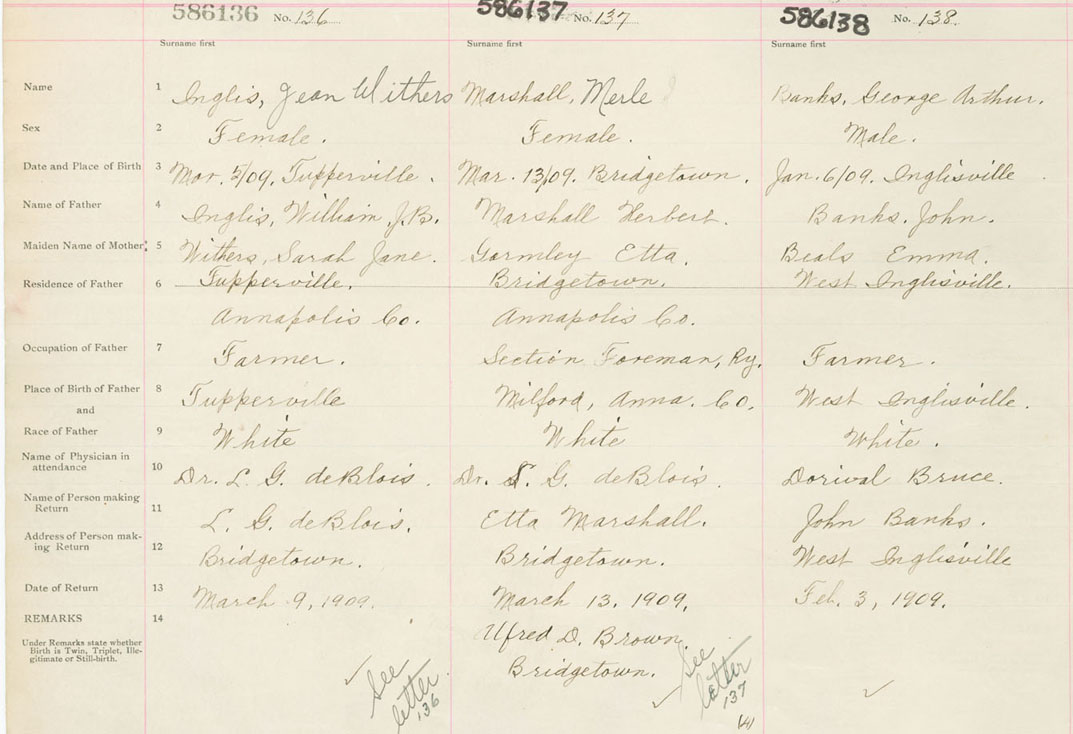 586136 No. 136 586137 No. 137 586138 No. 138.
Surname first Surname first Surname first
Name 1 Inglis, Jean Withers Marshall, Merle Banks, George Arthur.
Sex 2 Female. Female. Male.
Date and Place of Birth 3 Mar. 5/09. Tupperville. Mar. 13/09. Bridgetown. Jan. 6/09. Inglisville
Name of Father 4 Inglis, William, J.B. Marshall Herbert. Banks. John.
Maiden Name of Mother 5 Withers, Sarah Jane. Gormley Etta. Beals Emma.
Residence of Father 6 Tupperville. Bridgetown. West Inglisville.
Annapolis Co. Annapolis Co.
Occupation of Father 7 Farmer. Section Foreman, Ry. Farmer.
Place of Birth of Father 8 Tupperville Milford, Anna. Co. West Inglisville.
and
Race of Father 9 White White White.
Name of Physician in
attendance 10 Dr. L. G. deBlois. Dr. S. G. deBlois. Dorival Bruce.
Name of Person making
Return 11 L. G. deBlois. Etta Marshall. John Banks.
Address of Person mak-
ing Return 12 Bridgetown. Bridgetown. West Inglisville
Date of Return 13 March 9, 1909. March 13. 1909. Feb. 3, 1909.
REMARKS 14
Under Remarks state whether
Birth is Twin, Triplet, Ille-
gitimate or Still-birth.
Alfred D. Brown.
Bridgetown.
See
letter
136
See
letter
137
(4)